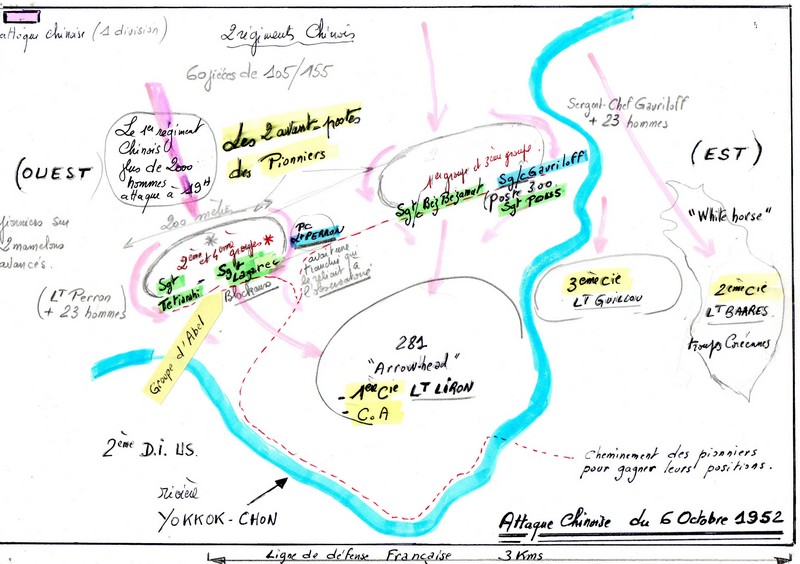 attaque chinoise (1 division)
2 régiments Chinois
60 pièces de 105/155
(OUEST)
Le 1er régiment
Chinois
plus de 2000
hommes
attaque à 19H
Les 2 avant-postes
des Pionniers
Sergent-Chef Gavriloff
+ 23 hommes
(EST)
1er groupe et 3ème groupe
Sgt/c Gavriloff
Sgt Bez Bejamat
(Poste 300
Sgt POISIS
pionniers sur
2 mamelons
avancés.
200 mètres
2ème et 4ème groupes
Sgt
Sgt Lagarec
Blockaus
PC
Lt PERRON
avait une
tranchée qui
le reliait à
l'observatoire
(LT Perron
+ 23 hommes)
Groupe d'Abel
"White horse"
3ème Cie
LT GUILLOU
2ème Cie
LT BARRES
troupes Coréennes
281
"Arrow-head"
- 1ère Cie LT LIRON
- C.A
2ème D.I. US.
rivière
YOKKOK-CHON
Cheminement des pionniers
pour gagner leurs positions.
Attaque Chinoise du 6 Octobre 1952
Ligne de défense Française 3 Kms